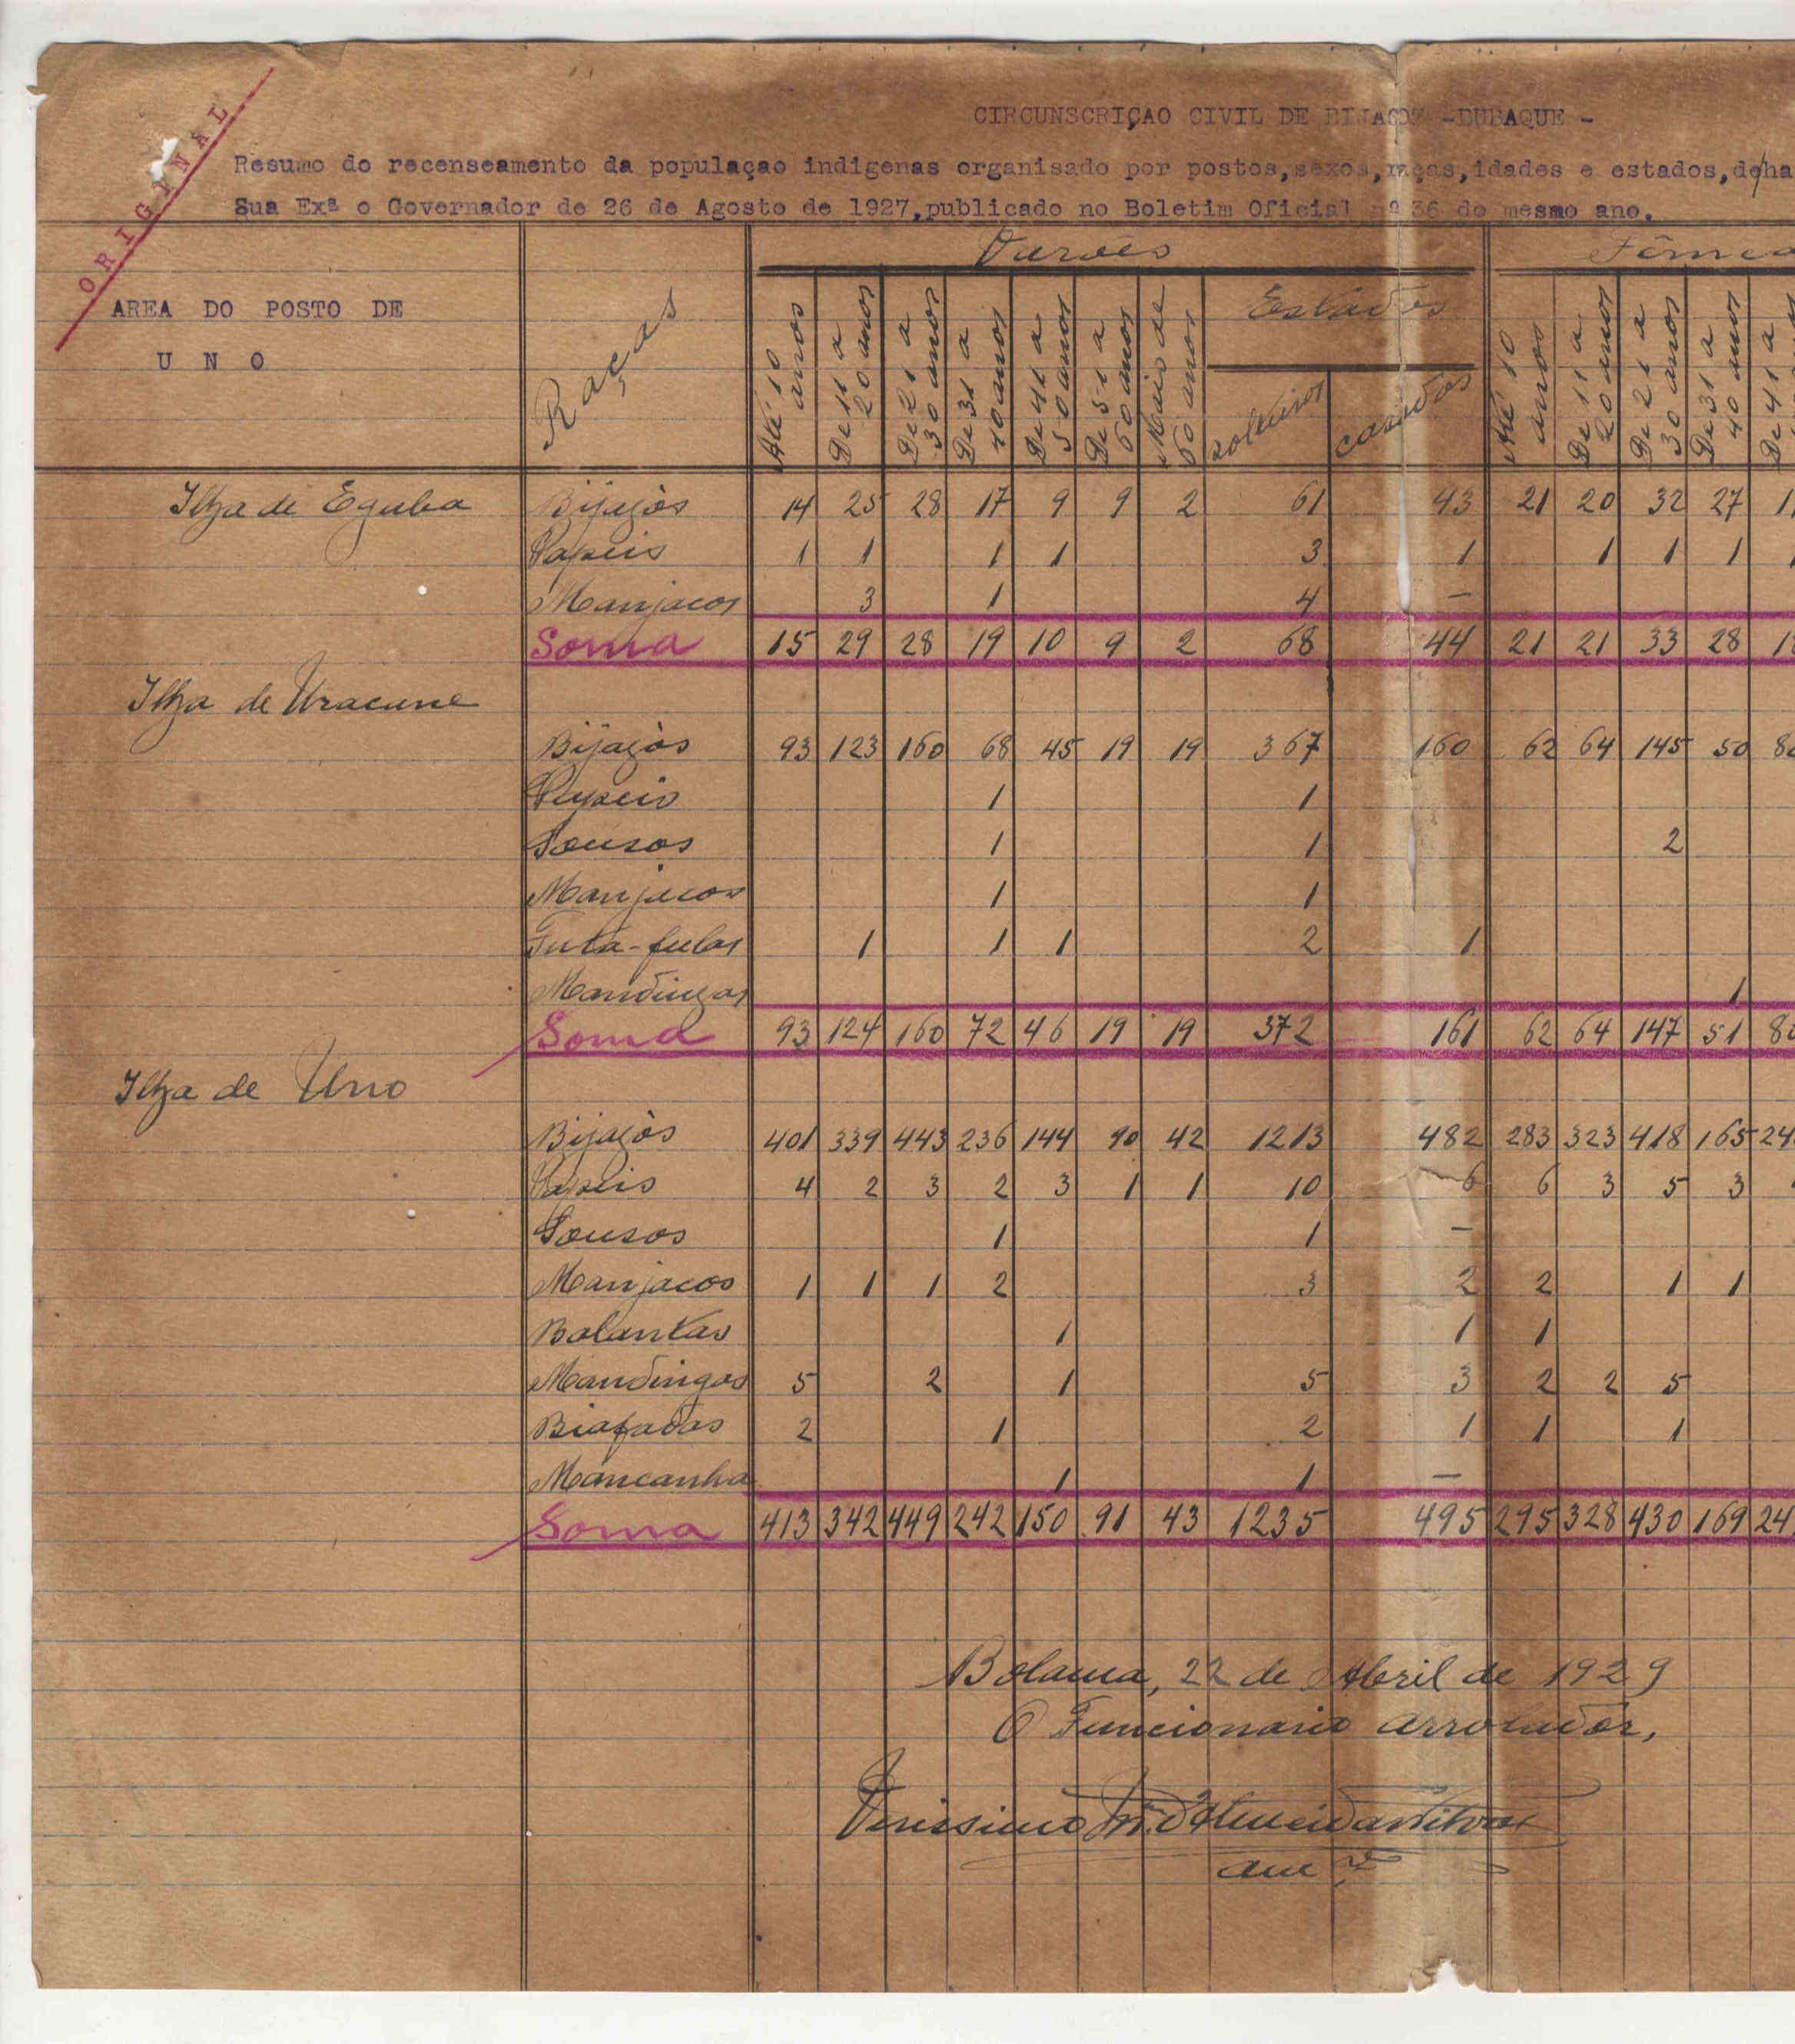 ORIGINAL
CIRCUNSCRIÇAO CIVIL DE BIJAGOZ -BUBAQUE -
Resumo do recenseamento da populaçao indigenas organisado por postos,sexos,raças,idades e estados,de/ha
Sua Exª o Governador de 26 de Agosto de 1927,publicado no Boletim Oficial nº 36 do mesmo ano.
AREA DO POSTO DE
U N O
Raças
Varões
Fêmea
Até 10 anos
De 11 a 20 anos
De 21 a 30 anos
De 31 a 40 anos
De 41 a 50 anos
De 51 a 60 anos
Mais de 60 anos
Estados
solteiros
casados
Até 10 anos
De 11 a 20 anos
De 21 a 30 anos
De 31 a 40 anos
De 41 a
Ilha de Eguba Bijagòs 14 25 28 17 9 9 2 61 43 21 20 32 27
Papeis 1 1 1 1 3 1 1 1 1
Manjacos 3 1 4 —
Soma 15 29 28 19 10 9 2 68 44 21 21 33 28
Ilha de Uracune
Bijagòs 93 123 160 68 45 19 19 367 160 62 64 145 50
Papeis 1 1
Sousos 1 1 2
Manjacos 1 1
Futa-fulas 1 1 1 2 1
Mandingas 1
Soma 93 124 160 72 46 19 19 372 161 62 64 147 51
Ilha de Uno
Bijagòs 401 339 443 236 144 90 42 1213 482 283 323 418 165 24
Papeis 4 2 3 2 3 1 1 10 6 6 3 5 3
Sousos 1 1 —
Manjacos 1 1 1 2 3 2 2 1 1
Balantas 1 1 1
Mandingas 5 2 1 5 3 2 2 5
Biafadas 2 1 2 1 1 1
Mancanha 1 1 —
Soma 413 342 449 242 150 91 43 1235 495 295 328 430 169 24
Bolama, 22 de Abril de 1929
O Funcionario arrolador,
Verissimo